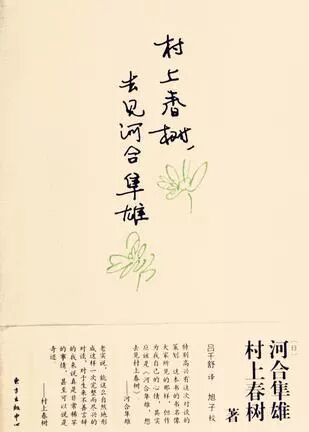 村上春树，
去见河合隼雄
〔日〕
河合隼雄
村上春树
著
吕千舒 译 旭子 校
特别高兴有这次对谈的
策划。这本书的书名像
大家所见的那样，但作
为我自己的心情，其实
应该是《河合隼雄，想
去见村上春树》
——河合隼雄
老实说，能这么自然地形
成这样一次完整而尽兴的
对谈，对于生来不善
的我来说真是非常稀罕
的事情，甚至可以说是
奇迹
——村上春树
东方出版中心